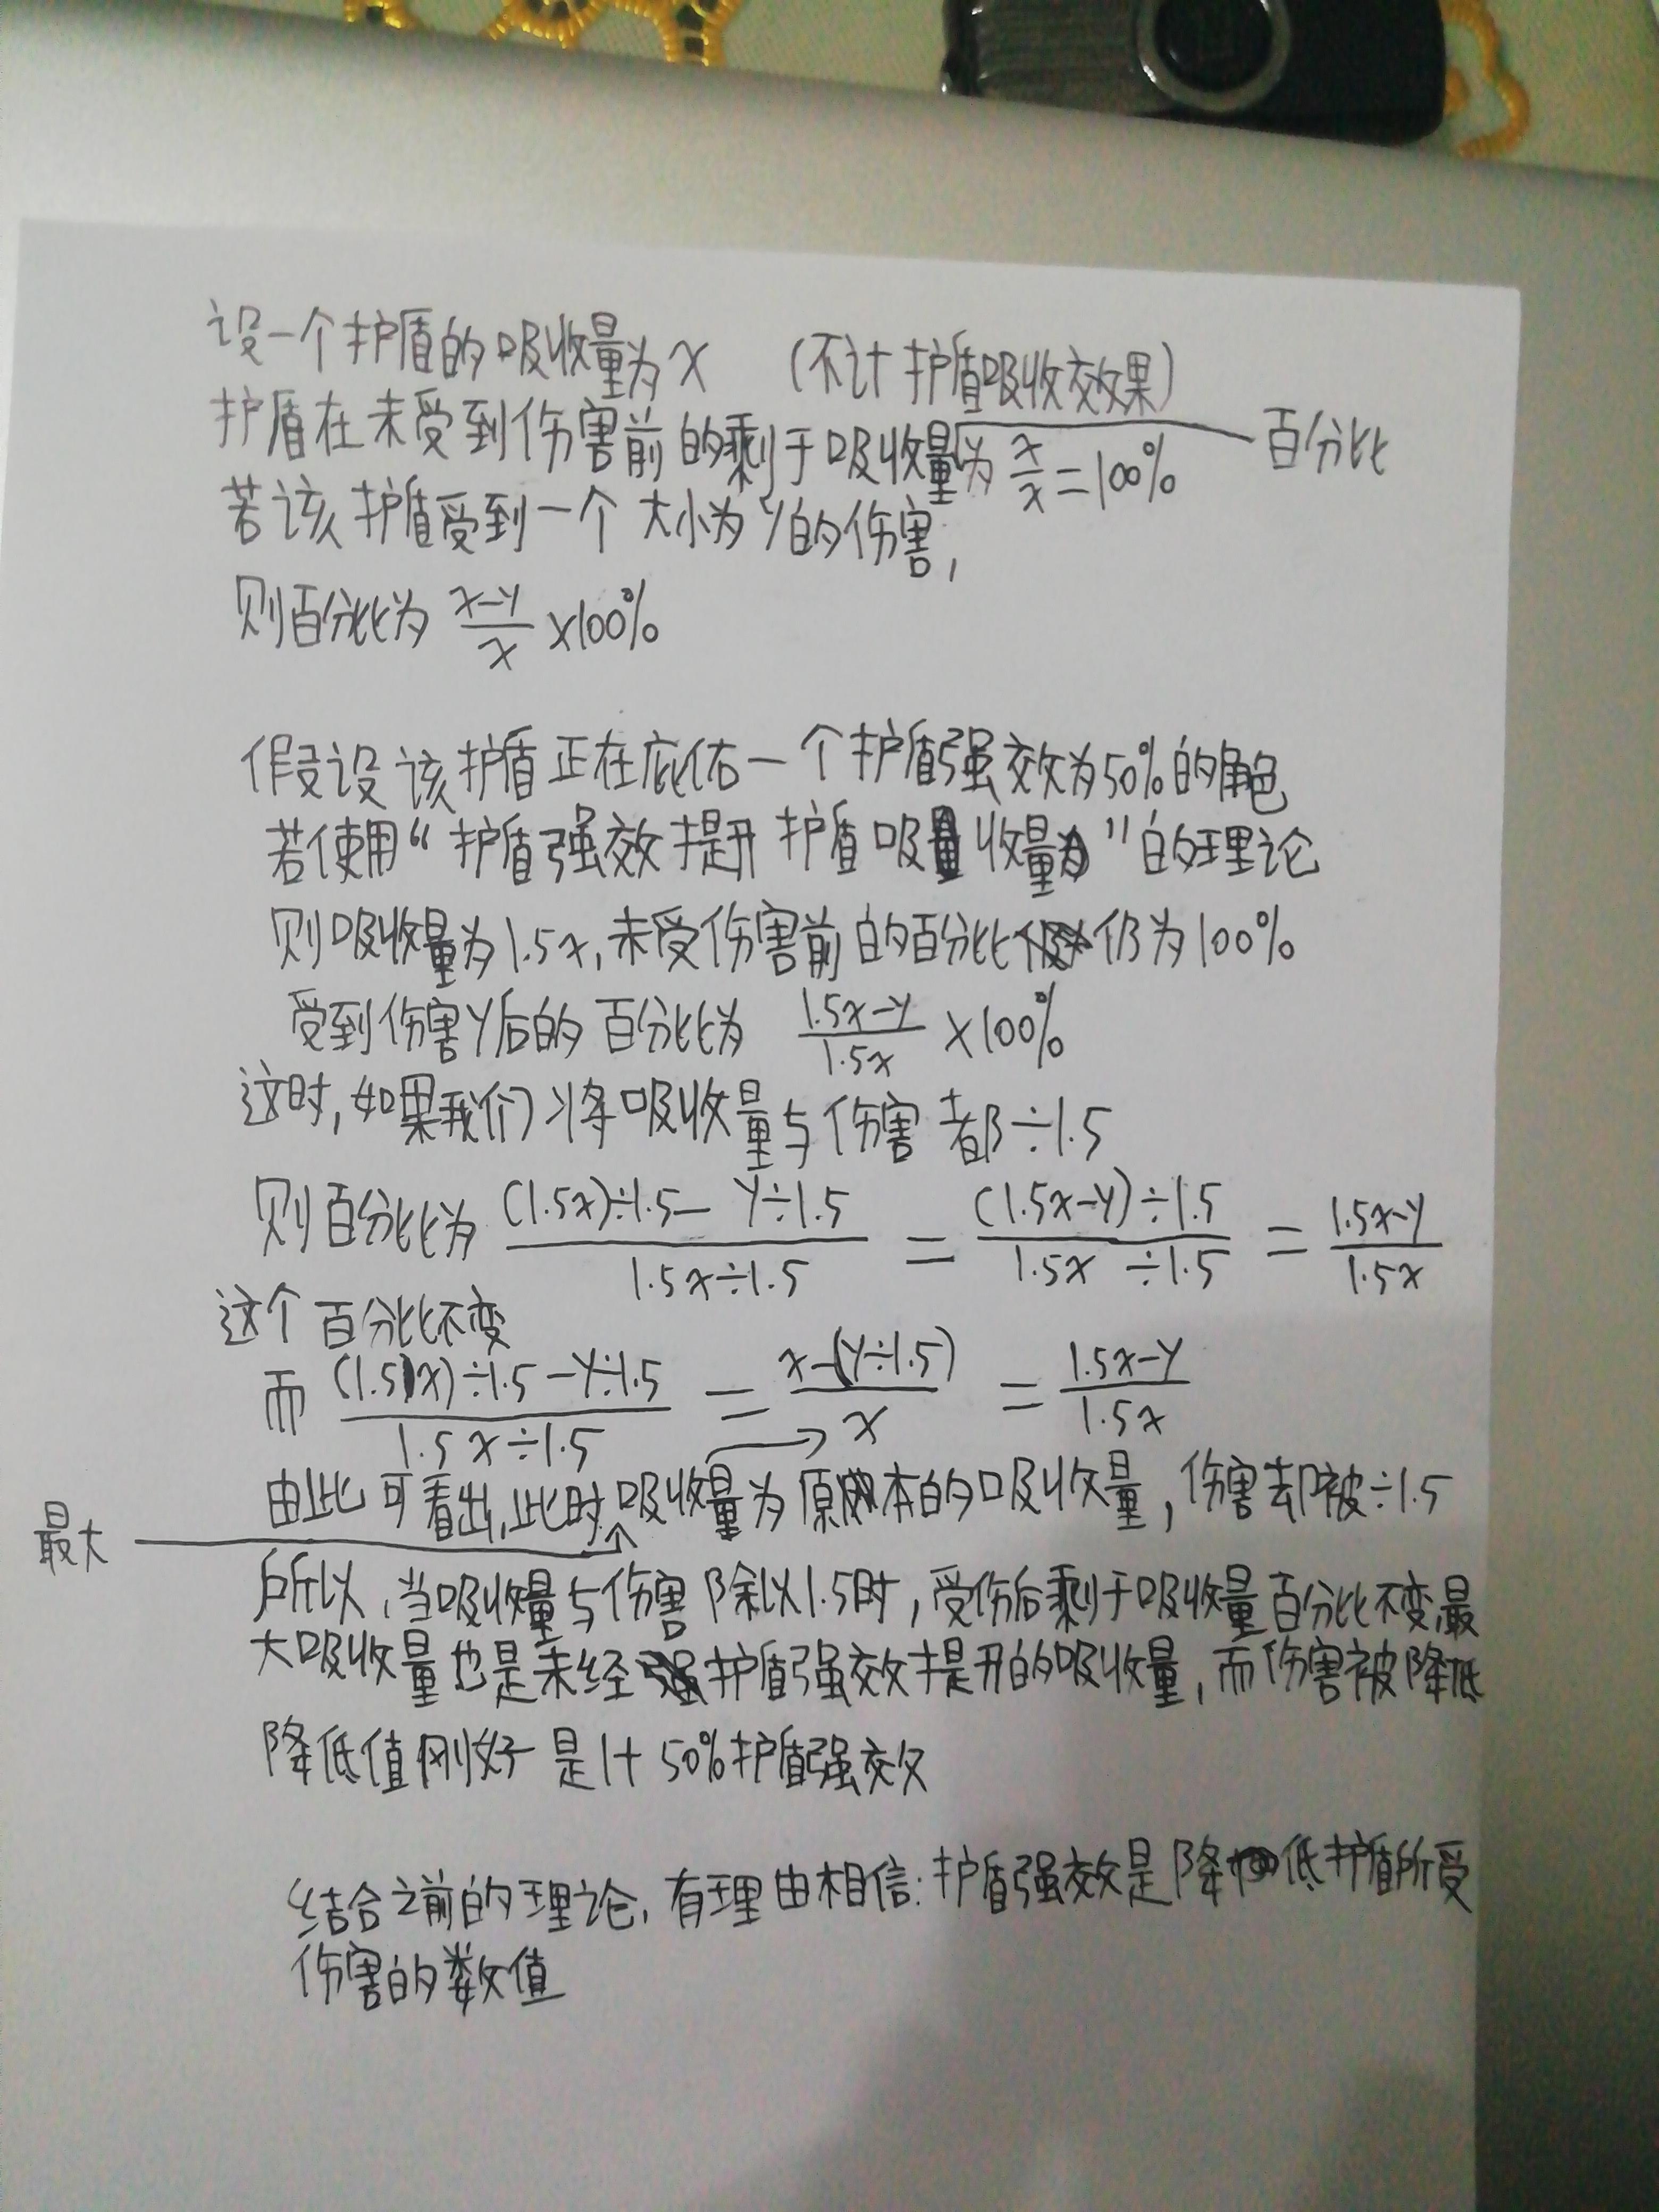 设一个护盾的吸收量为x （不计护盾吸收效果）
护盾在未受到伤害前的剩于吸收量为 x/x = 100% 百分比
若该护盾受到一个大小为y的伤害，
则百分比为 (x-y)/x ×100%
假设该护盾正在庇佑一个护盾强效为50%的角色
若使用“护盾强效提升护盾吸收量”的理论
则吸收量为1.5x，未受伤害前的百分比仍为100%
受到伤害y后的百分比为 (1.5x-y)/1.5x ×100%
这时，如果我们将吸收量与伤害都÷1.5
则百分比为 ((1.5x)÷1.5- y÷1.5)/(1.5x÷1.5) = ((1.5x-y)÷1.5)/(1.5x ÷1.5) = (1.5x-y)/1.5x
这个百分比不变
而 ((1.5x)÷1.5-y÷1.5)/(1.5x÷1.5) = (x-(y÷1.5))/x = (1.5x-y)/1.5x
由此可看出，此时吸收量为原本的吸收量，伤害却被÷1.5
最大
所以，当吸收量与伤害除以1.5时，受伤后剩于吸收量百分比不变，最
大吸收量也是未经护盾强效提升的吸收量，而伤害被降低
降低值刚好是1+50%护盾强效
结合之前的理论，有理由相信：护盾强效是降低护盾所受
伤害的数值